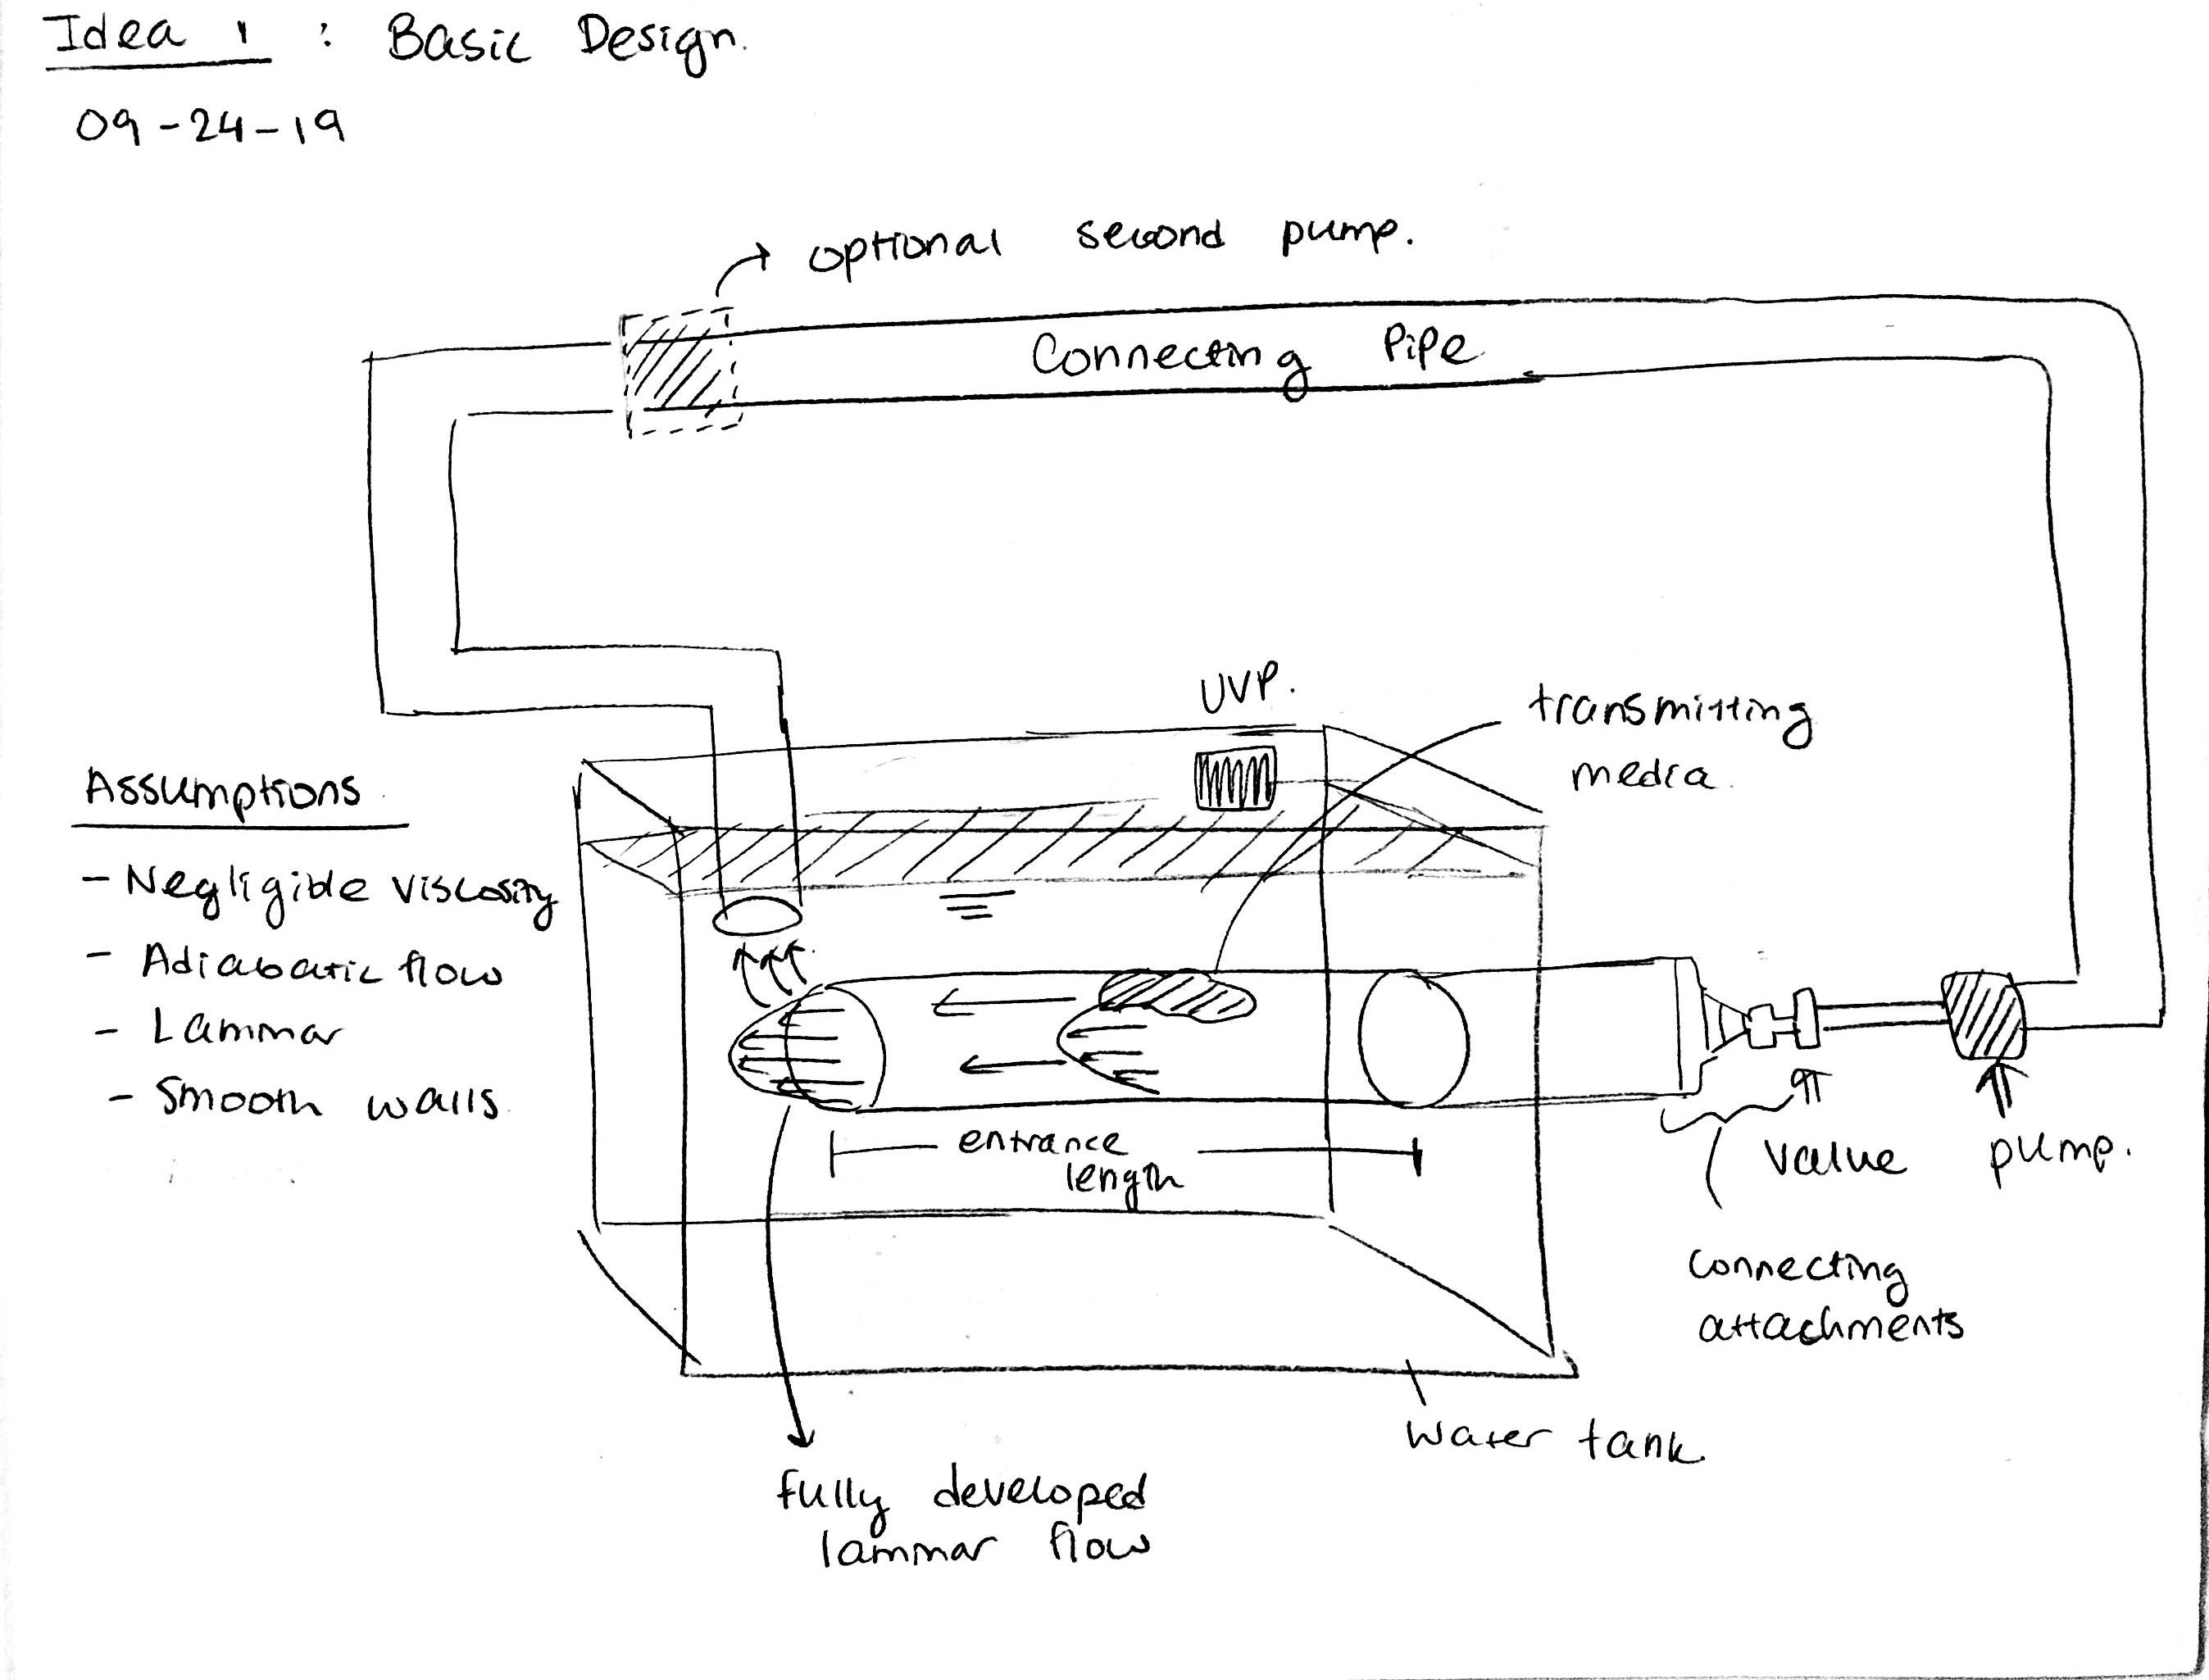 Idea 1 : Basic Design.
09-24-19
optional second pump.
Connecting Pipe
UVP.
transmitting
media.
Assumptions
- Negligible viscosity
- Adiabatic flow
- Laminar
- Smooth walls
entrance
length
value
pump.
connecting
attachments
water tank
fully developed
laminar flow